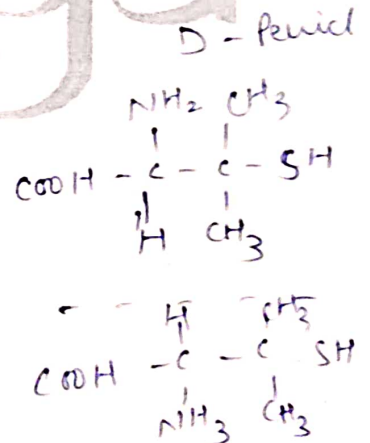 D - Penicl
NH₂ CH₃
COOH - C - C - SH
H CH₃
H CH₃
COOH - C - C SH
NH₃ CH₃